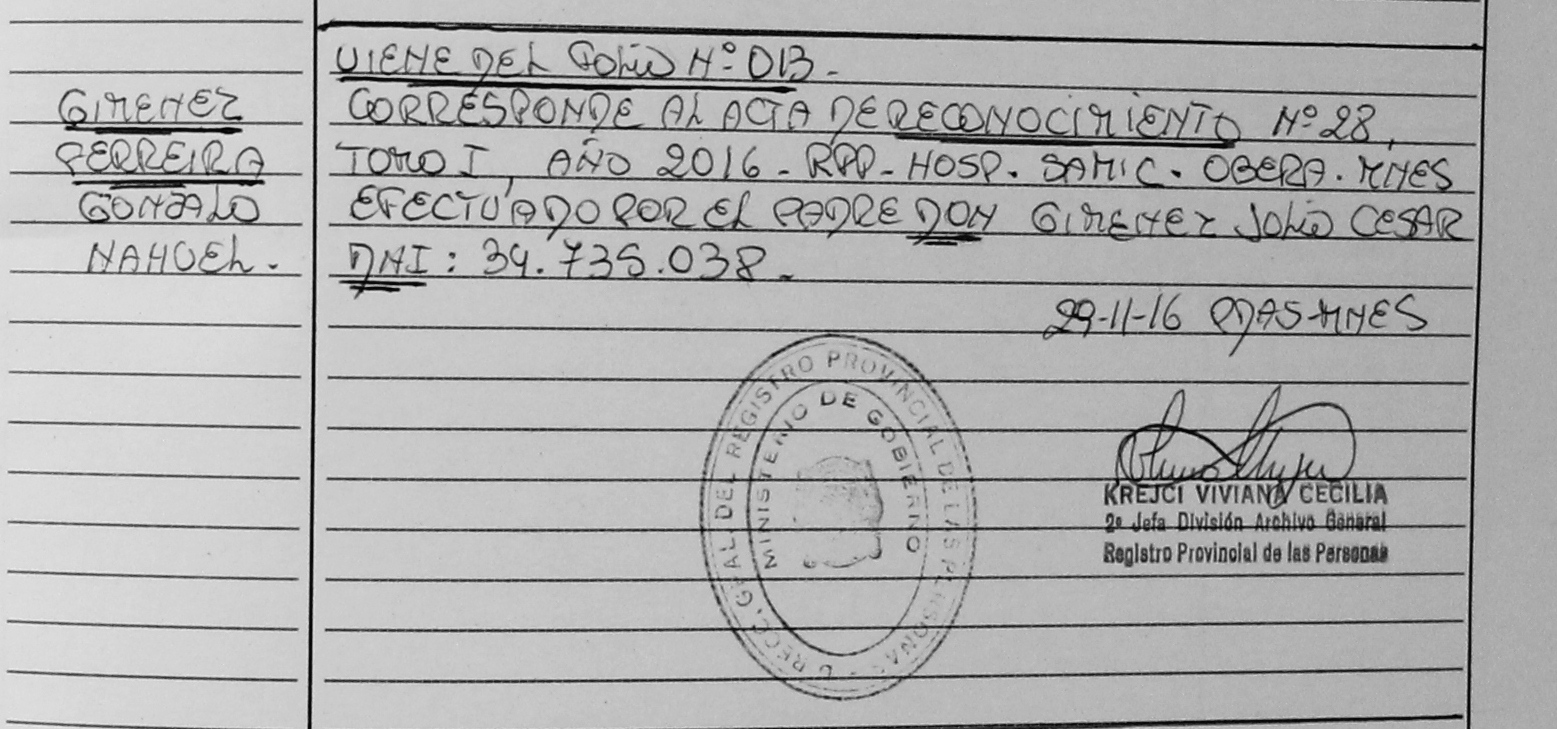 VIENE DEL FOLIO Nº 013.
GIMENEZ
FERREIRA
GONZALO
NAHUEL.
CORRESPONDE AL ACTA DE RECONOCIMIENTO Nº 28,
TOMO I, AÑO 2016 - RPP - HOSP. SAMIC. OBERA. MNES
EFECTUADO POR EL PADRE DON GIMENEZ JULIO CESAR
DNI: 34.735.038.
29-11-16 PDAS-MNES
DIRECC. GRAL. DEL REGISTRO PROVINCIAL DE LAS PERSONAS
MINISTERIO DE GOBIERNO
KREJCI VIVIANA CECILIA
2º Jefa División Archivo General
Registro Provincial de las Personas